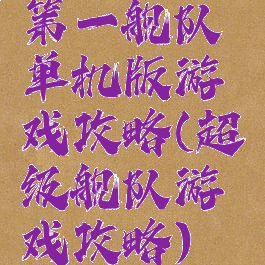 第一舰队
单机版游
戏攻略(超
级舰队游
戏攻略)